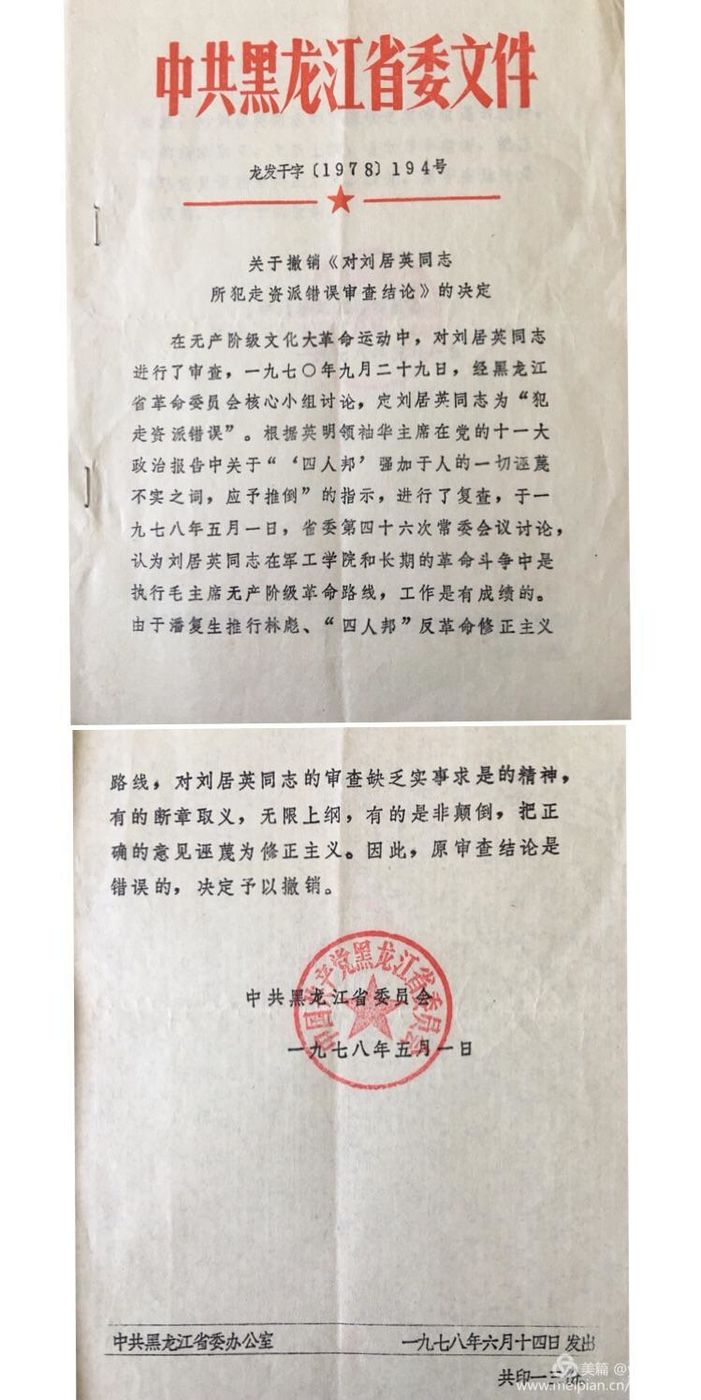 中共黑龙江省委文件
龙发干字〔1978〕194号
关于撤销《对刘居英同志
所犯走资派错误审查结论》的决定
在无产阶级文化大革命运动中，对刘居英同志
进行了审查，一九七〇年九月二十九日，经黑龙江
省革命委员会核心小组讨论，定刘居英同志为“犯
走资派错误”。根据英明领袖华主席在党的十一大
政治报告中关于“‘四人邦’强加于人的一切诬蔑
不实之词，应予推倒”的指示，进行了复查，于一
九七八年五月一日，省委第四十六次常委会议讨论，
认为刘居英同志在军工学院和长期的革命斗争中是
执行毛主席无产阶级革命路线，工作是有成绩的。
由于潘复生推行林彪、“四人邦”反革命修正主义
路线，对刘居英同志的审查缺乏实事求是的精神，
有的断章取义，无限上纲，有的是非颠倒，把正
确的意见诬蔑为修正主义。因此，原审查结论是
错误的，决定予以撤销。
中国共产党黑龙江省委员会
中共黑龙江省委员会
一九七八年五月一日
中共黑龙江省委办公室
一九七八年六月十四日发出
共印一
美篇
www.meipian.cn/